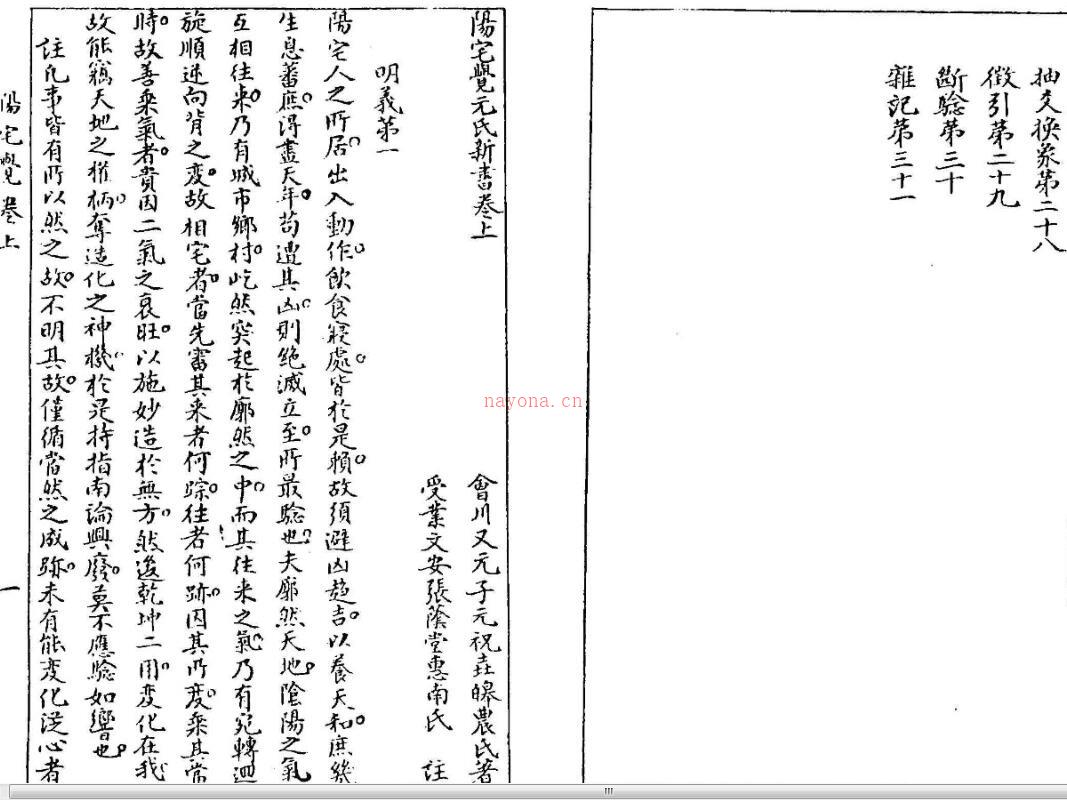 抽爻換象第二十八
徵引第二十九
斷驗第三十
雜記第三十一
陽宅覺元氏新書卷上
會川又元子元祝垚皞農氏著
受業文安張蔭堂惠南氏 註
明義第一
陽宅人之所居出入動作飲食寢處皆於是賴故須避凶趨吉以養天和庶幾
生息蕃庶得盡天年苟遭其凶則絶滅立至所最驗也夫廓然天地陰陽之氣
互相往來乃有城市鄉村屹然突起於廓然之中而其往來之氣乃有宛轉迴
旋順逆向背之変故相宅者當先審其来者何踪往者何跡因其所変乘其當
時故善乘氣者貴因二氣之衰旺以施妙造於無方然後乾坤二用変化在我
故能竊天地之權柄奪造化之神機於是持指南論興廢莫不應驗如響也
註凡事皆有所以然之故不明其故僅循當然之成跡未有能変化従心者
陽宅覺卷上
一
nayona.cn